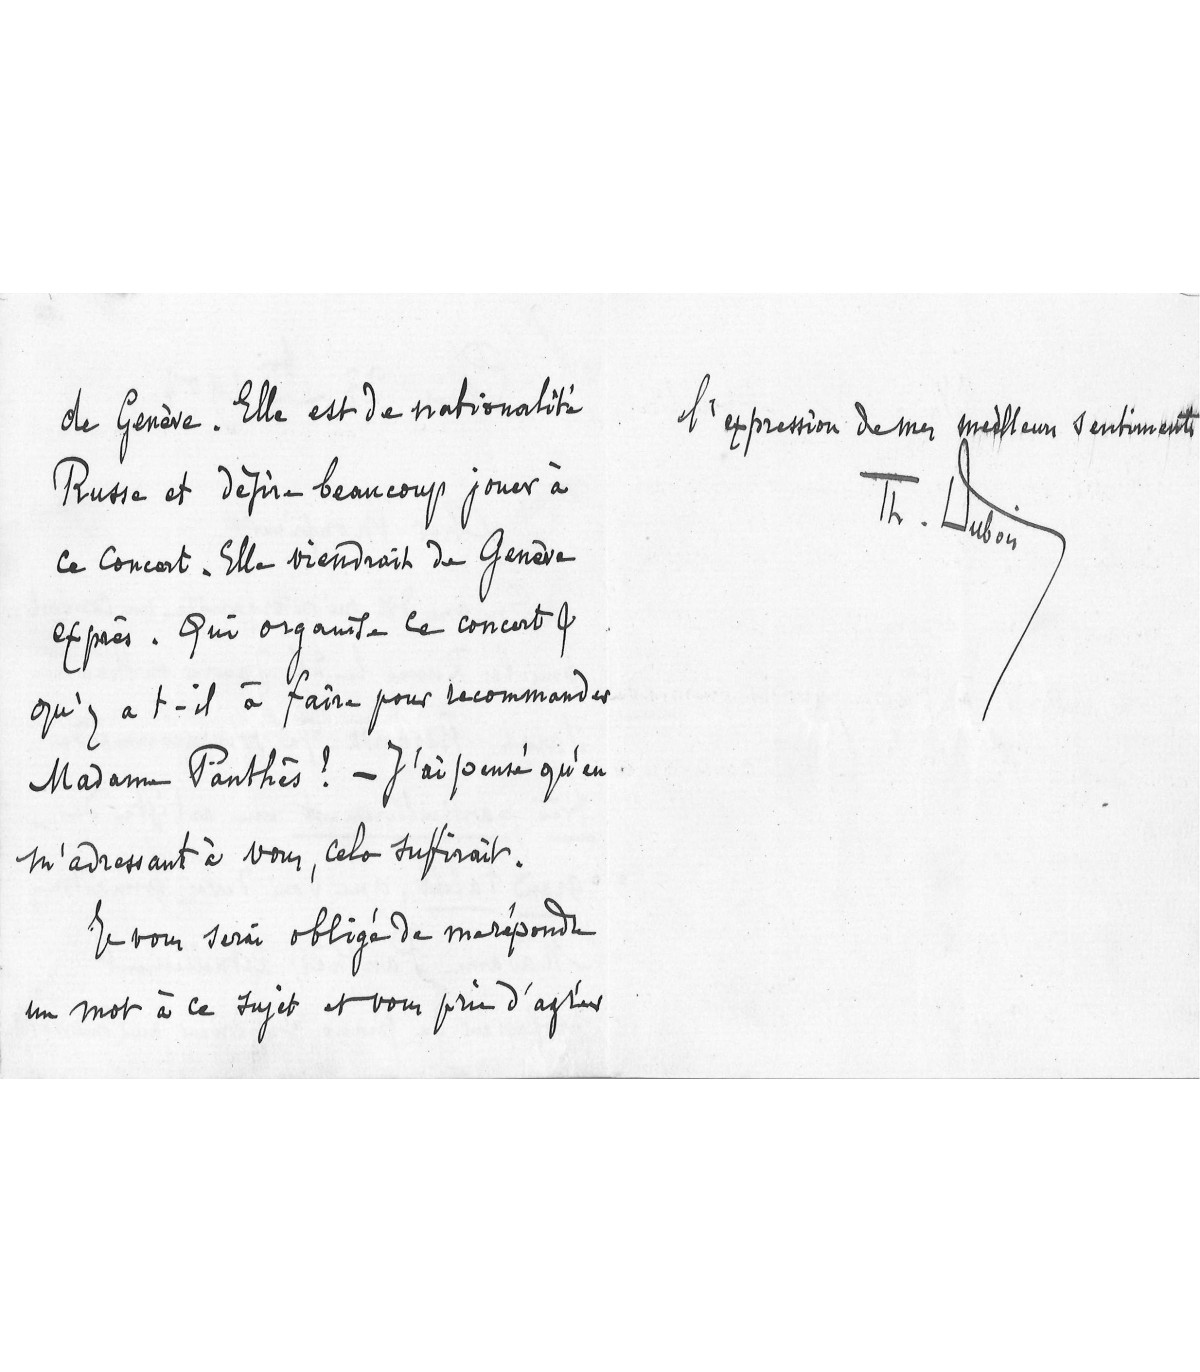 de Genève. Elle est de nationalité
Russe et désire beaucoup jouer à
ce concert. Elle viendrait de Genève
exprès. Qui organise ce concert &
qu'y a t-il à faire pour recommander
Madame Panthès! — J'ai pensé qu'en
m'adressant à vous, cela suffirait.
Je vous serai obligé de me répondre
un mot à ce sujet et vous prie d'agréer
l'expression de mes meilleurs sentiments
Th. Dubois